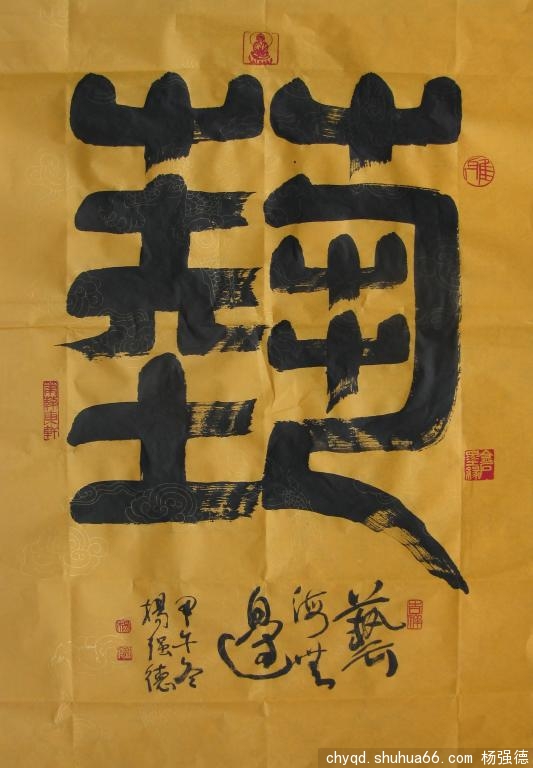 藝
藝
海無
邊
甲午冬
楊强德
吉祥
chyqd.shuhua66.com 杨强德